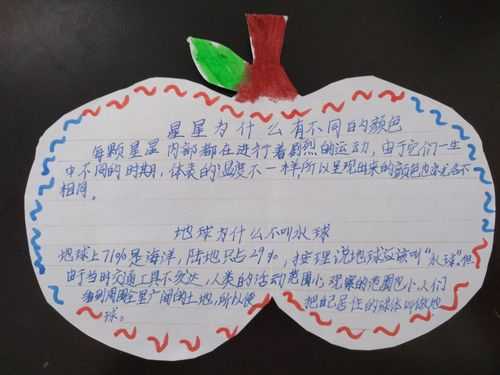 星星为什么有不同的颜色
每颗星星内部都在进行着剧烈的运动,由于它们一生
中不同的时期,体表的温度不一样所以呈现出来的颜色也各不
相同。
地球为什么不叫水球
地球上71%是海洋,陆地只占29%,按理说地球应该叫“水球”。但
由于当时交通工具不发达,人类的活动范围小,观察的范围也小,人们
看到周围全是广阔的土地,所以便把自己居住的球体叫做地
球。